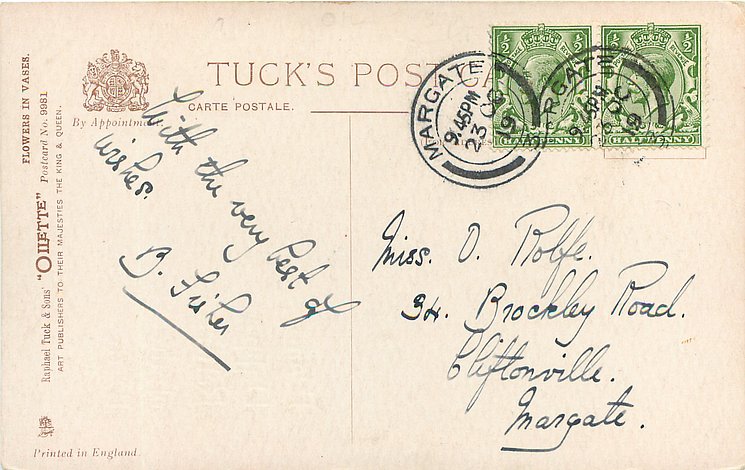 TUCK'S POST CA
CARTE POSTALE.
By Appointment.
FLOWERS IN VASES.
Raphael Tuck & Sons' "OILETTE" Postcard No. 9981
ART PUBLISHERS TO THEIR MAJESTIES THE KING & QUEEN.
Printed in England.
MARGATE
9.45PM
23 OC
19
RGATE
9.45PM
19
½ ½
HALFPENNY
½ ½
HALFPENNY
With the very best of
wishes.
B. Fisher
Miss. O. Rolfe.
34. Brockley Road.
Cliftonville.
Margate.